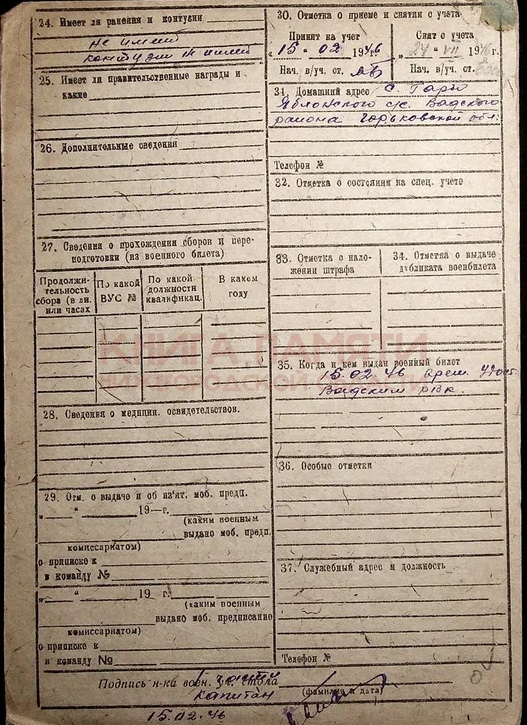 24. Имеет ли ранения и контузии
Не имеет
контузии не имеет
25. Имеет ли правительственные награды и
какие
26. Дополнительные сведения
27. Сведения о прохождении сборов и пере-
подготовки (из военного билета)
Продолжи-
тельность
сбора (в дн.
или часах
По какой
ВУС №
По какой
должности
квалификац.
В каком
году
28. Сведения о медицин. освидетельствов.
29. Отм. о выдаче и об из'ят. моб. предп.
„ “ 19—г.
(каким военным
выдано моб. предп.
комиссариатом)
о приписке к
в команду №
„ “ 19 г.
(каким военным
выдано моб. предписание
комиссариатом)
о приписке к
в команду №
30. Отметка о приеме и снятии с учета
Принят на учет
„15„ 02 1946
Нач. в/уч. ст.
Снят с учета
„24„ VII 19
Нач. в/уч. ст.
31. Домашний адрес с.
Яблонского с/с. Вадского
района Горьковской обл.
Телефон №
32. Отметка о состоянии на спец. учете
33. Отметка о нало-
жении штрафа
34. Отметка о выдаче
дубликата военбилета
35. Когда и кем выдан военный билет
15.02.46 врем. удост.
Вадским рвк.
36. Особые отметки
37. Служебный адрес и должность
Телефон №
Подпись н-ка воен. уч. стола
капитан
(фамилия и дата)
15.02.46
КНИГА ПАМЯТИ
НИЖЕГОРОДСКОЙ ОБЛАСТИ